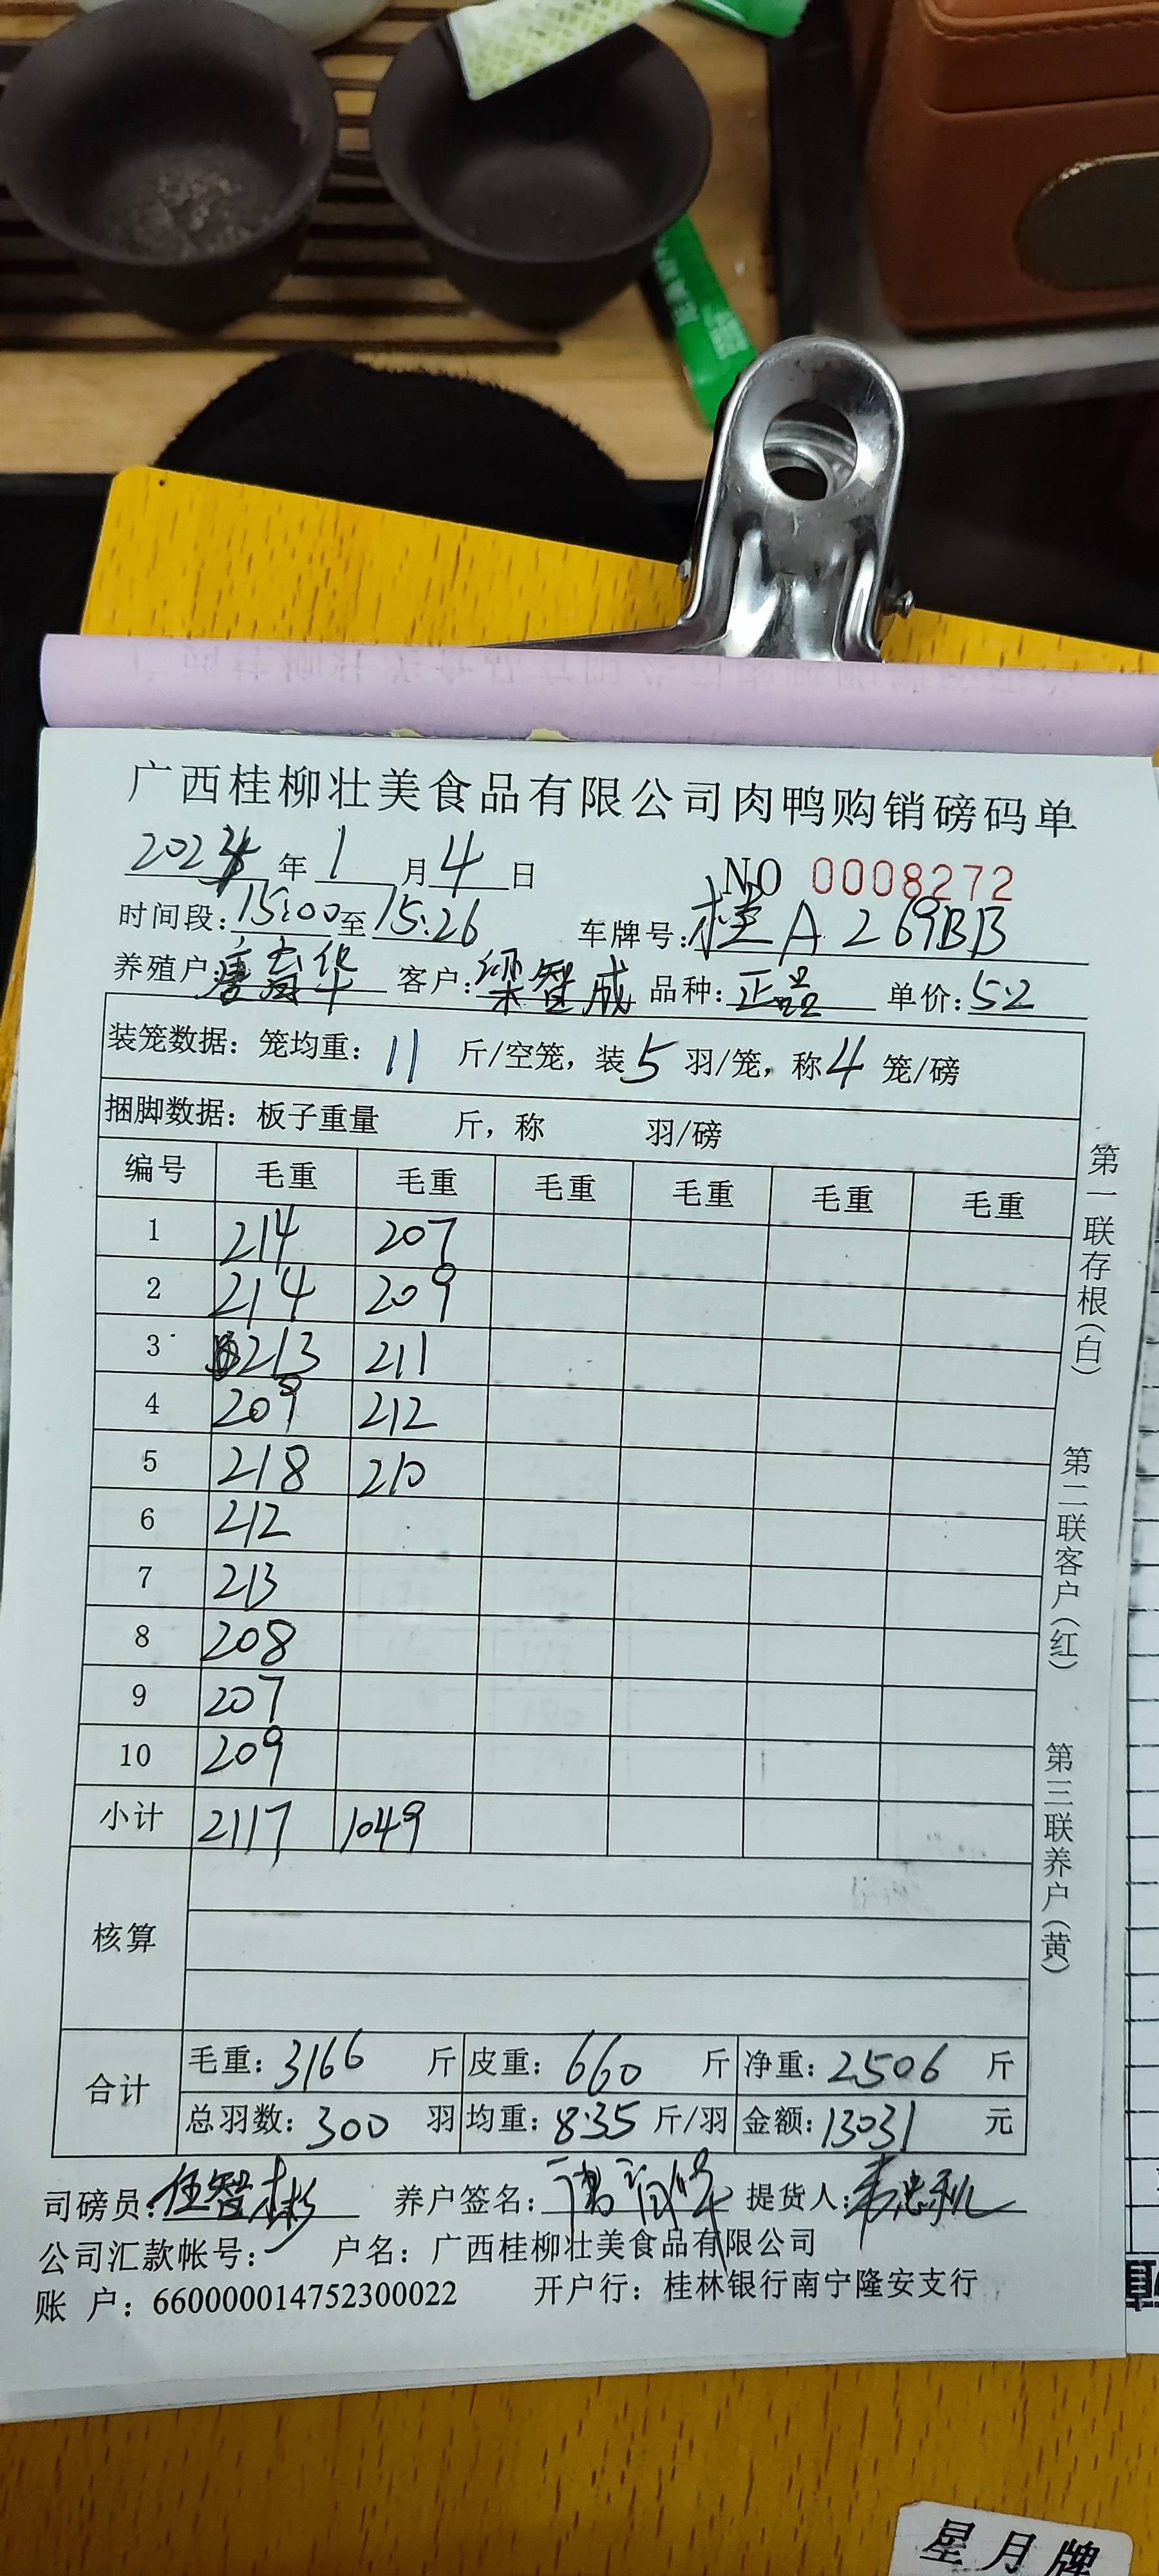 广西桂柳壮美食品有限公司肉鸭购销磅码单
2024年1月4日 NO 0008272
时间段:15:00至15:26 车牌号:桂A269BB
养殖户 唐育华 客户:梁智成 品种:正品 单价:5.2
装笼数据:笼均重:11 斤/空笼,装5羽/笼,称4笼/磅
捆脚数据:板子重量 斤,称 羽/磅
编号 毛重 毛重 毛重 毛重 毛重 毛重
1 214 207
2 214 209
3 213 211
4 209 212
5 218 210
6 212
7 213
8 208
9 207
10 209
小计 2117 1049
核算
合计 毛重:3166斤 皮重:660斤 净重:2506斤
总羽数:300羽 均重:8.35斤/羽 金额:13031元
司磅员: 养户签名:唐育华 提货人:
公司汇款帐号: 户名:广西桂柳壮美食品有限公司
账 户:660000014752300022 开户行:桂林银行南宁隆安支行
第一联存根(白) 第二联客户(红) 第三联养户(黄)
星月牌